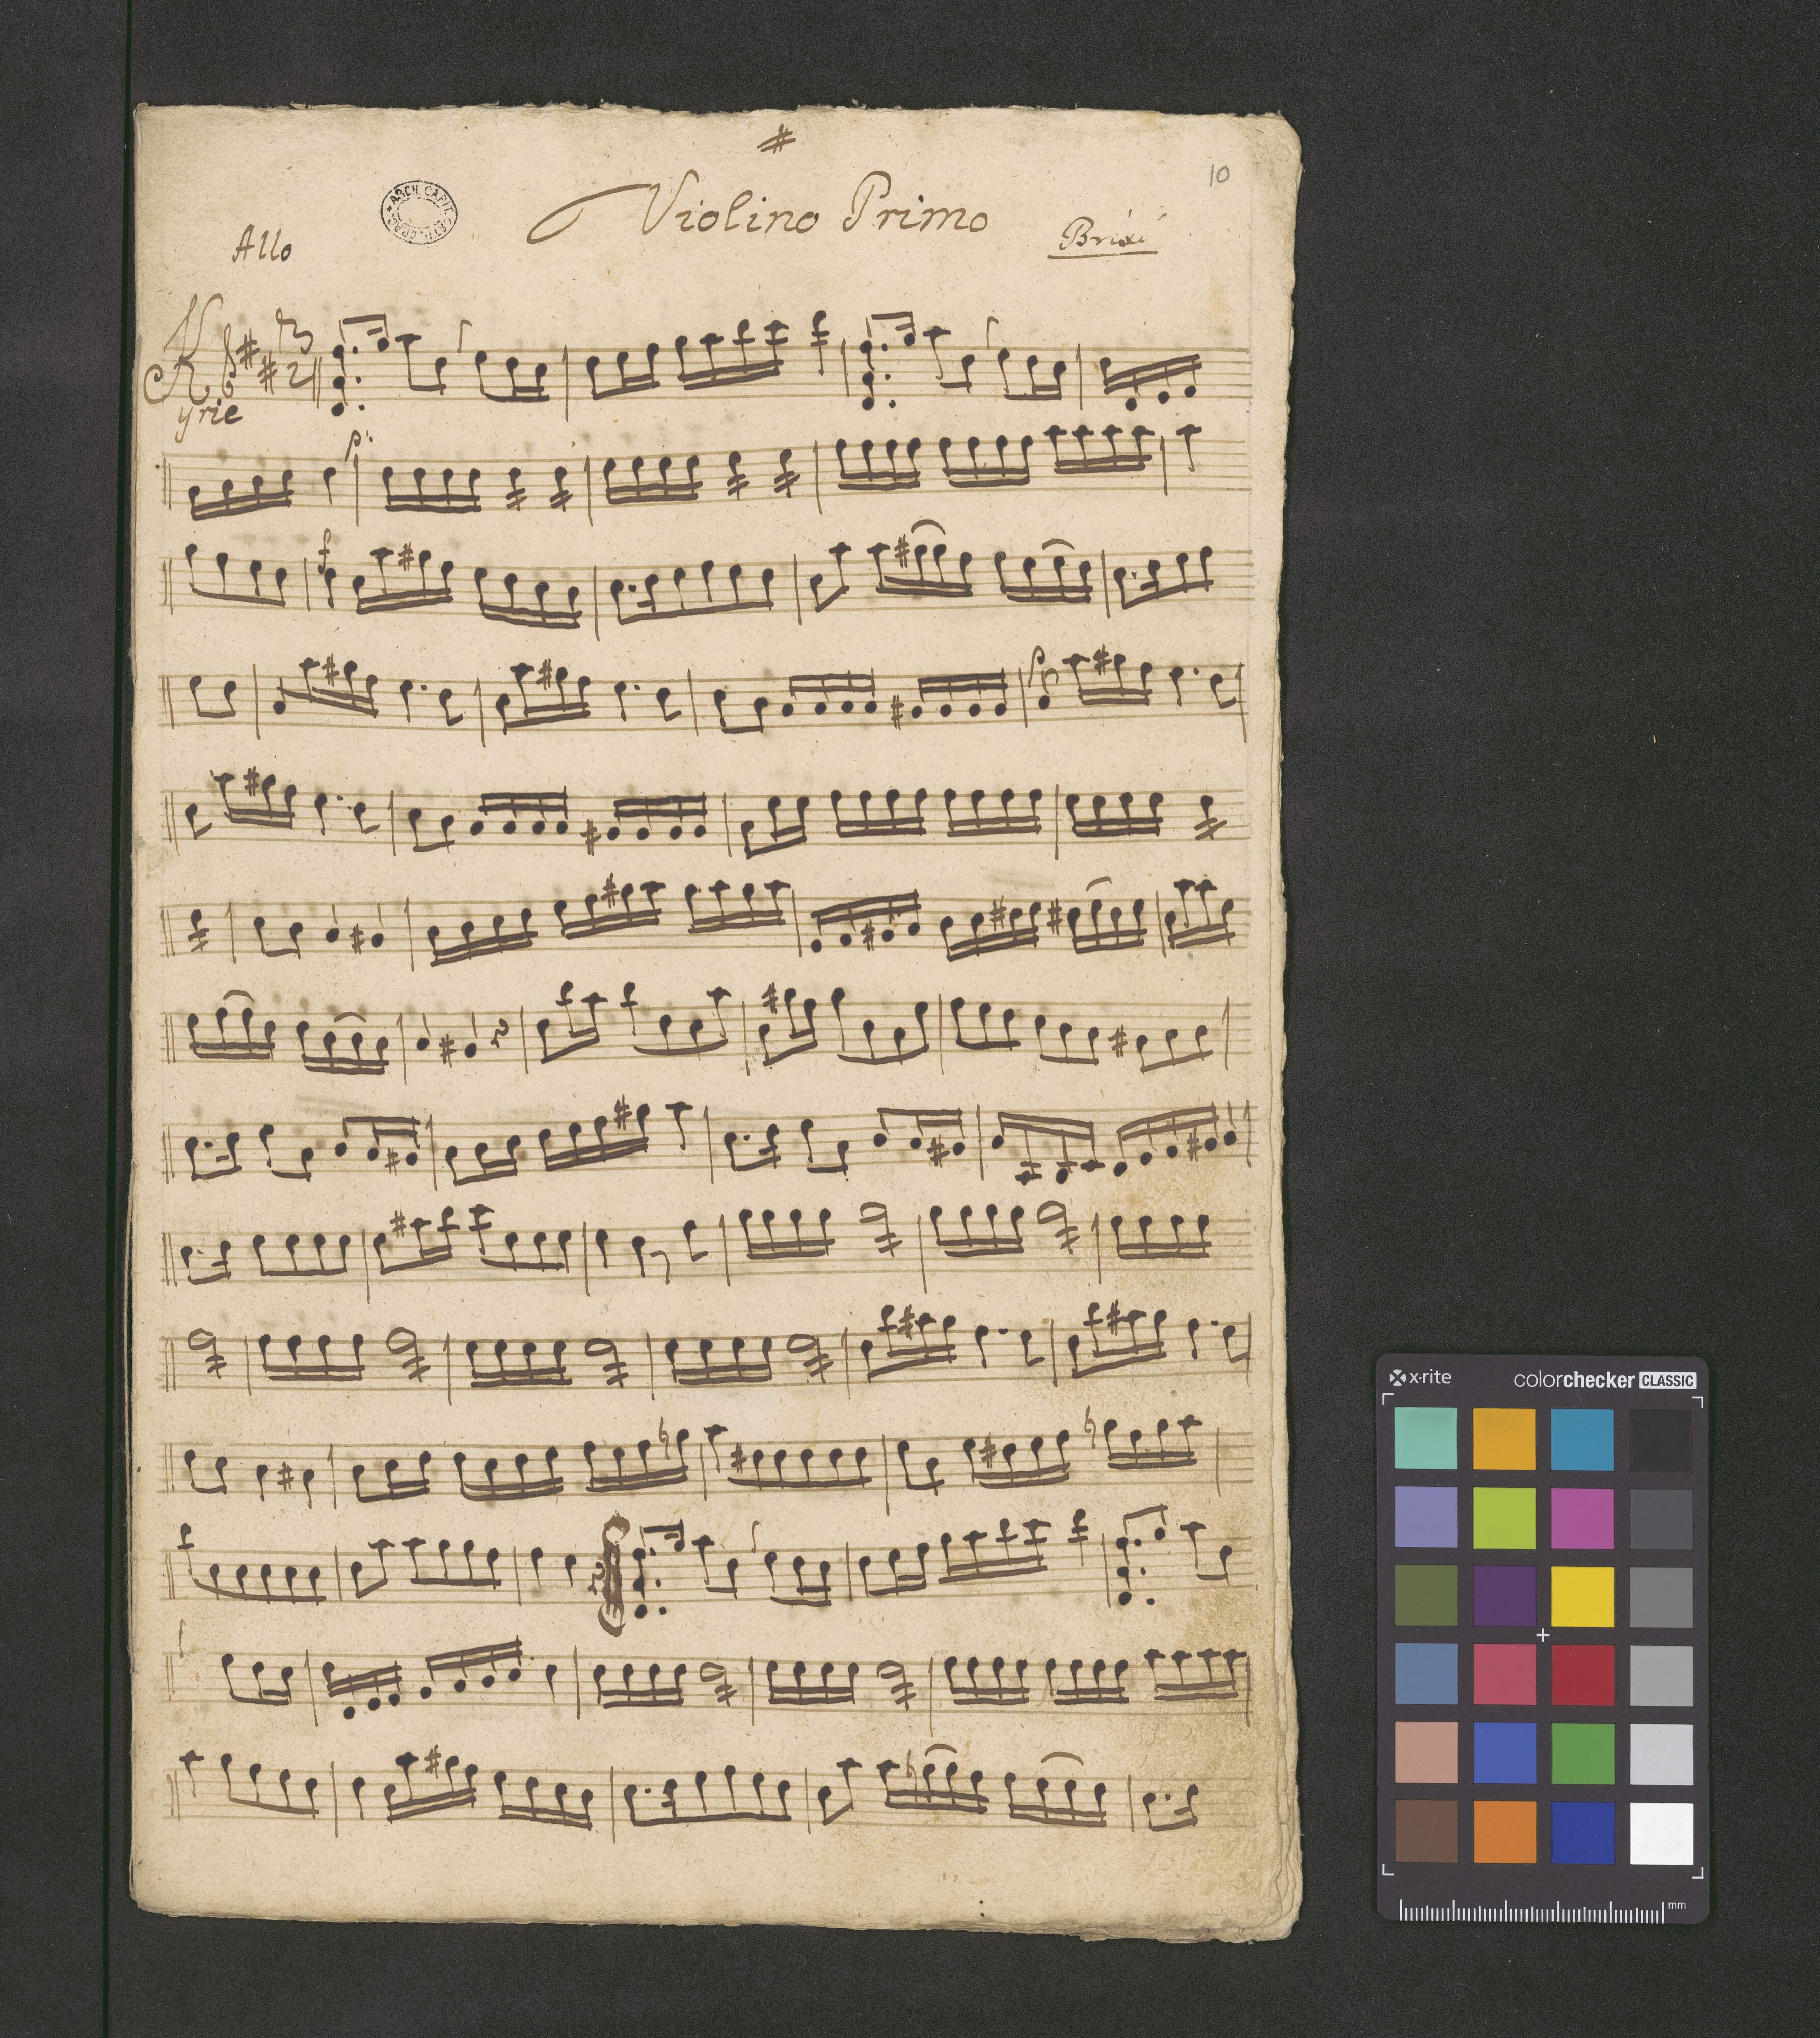 10
Violino Primo
Allo
Brixi
Kyrie
3
2
p:
f
p
x·rite
colorchecker CLASSIC
mm